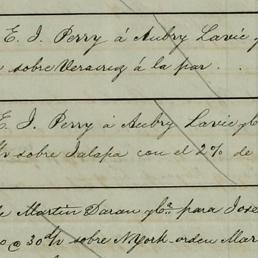 E. J. Perry á Aubry Lavie y
sobre Veracruz á la par . .
E. J. Perry á Aubry Lavie y C
d/v sobre Jalapa con el 2% de
de Martin Daran y Cª. para José
@ 30 d/v sobre N York orden Mar